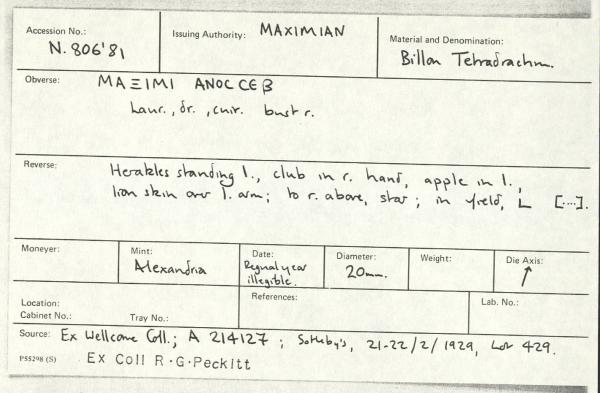 Accession No.: Issuing Authority: MAXIMIAN Material and Denomination:
N. 806'81 Billon Tetradrachm.
Obverse: ΜΑΞΙΜΙ ΑΝΟC CΕΒ
Laur., dr., cuir. bust r.
Reverse: Herakles standing l., club in r. hand, apple in l.,
lion skin over l. arm; to r. above, star; in field, L [...].
Moneyer: Mint: Date: Diameter: Weight: Die Axis:
Alexandria Regnal year illegible. 20mm. ↑
Location: References: Lab. No.:
Cabinet No.: Tray No.:
Source: Ex Wellcome Coll.; A 214127; Sotheby's, 21-22/2/1929, Lot 429.
P55298 (S) Ex Coll R·G·Peckitt